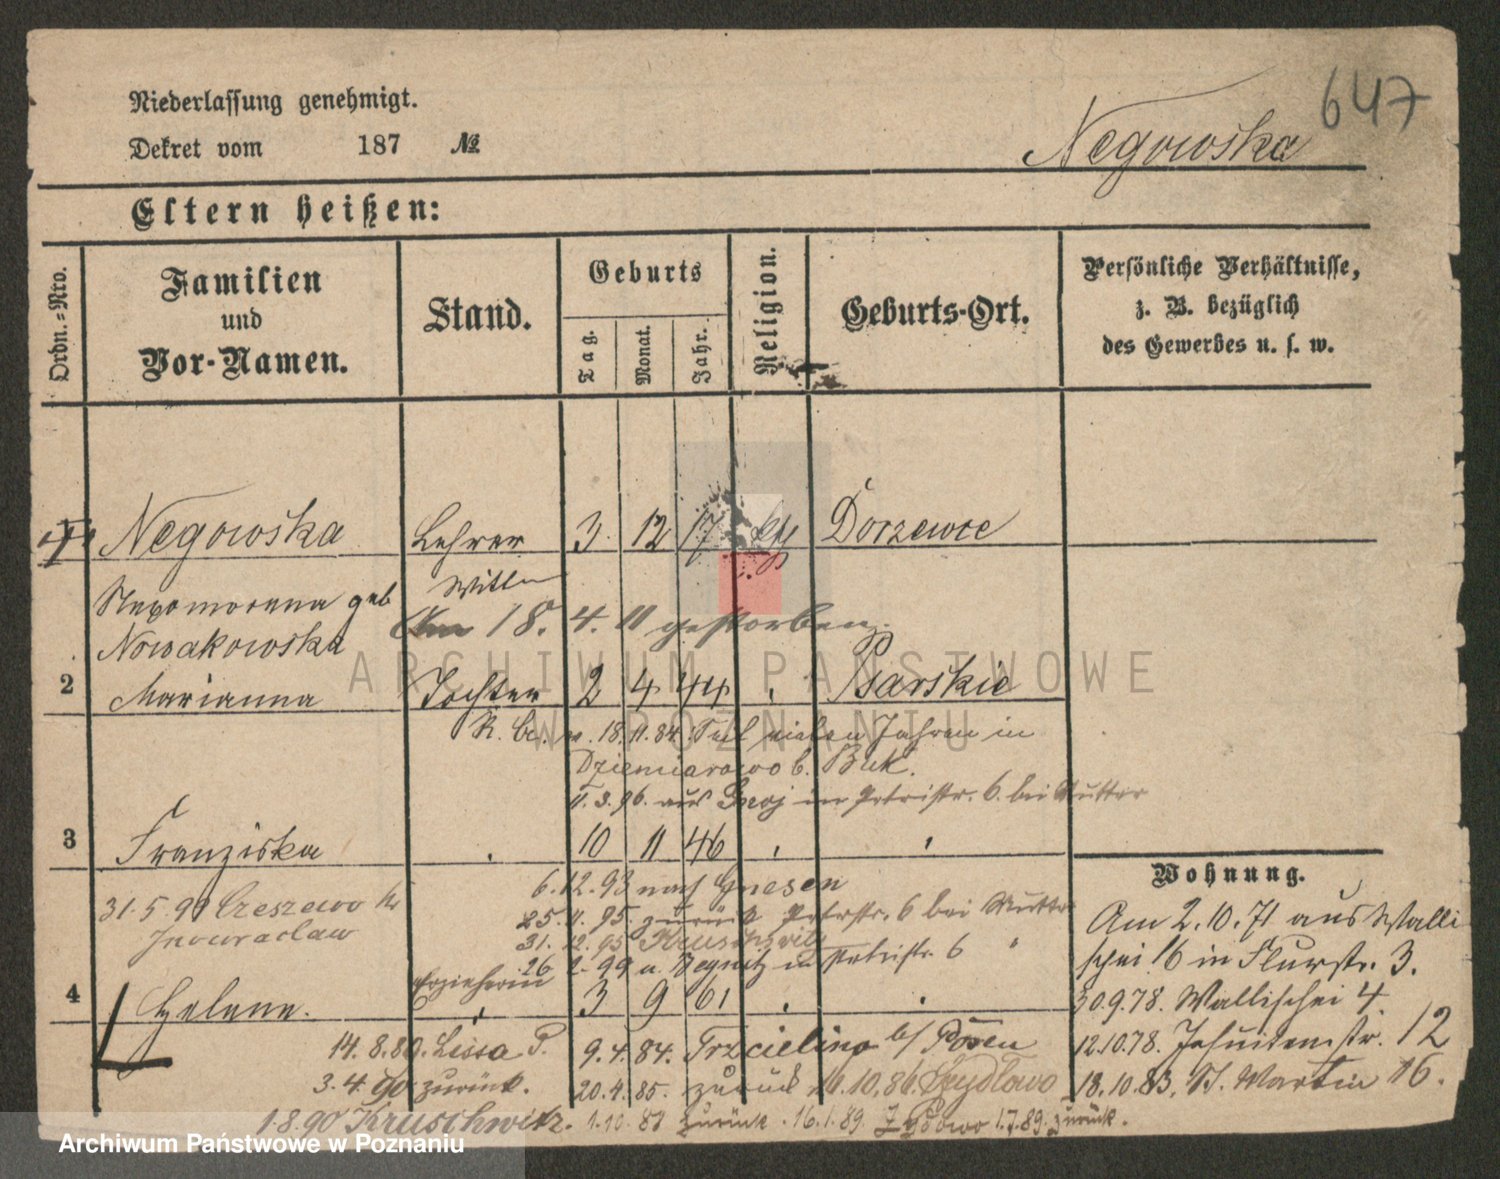 647
Niederlassung genehmigt.
Dekret vom 187 №
Negowska
Eltern heißen:
Ordn.-Nro.
Familien und Vor-Namen.
Stand.
Geburts
Tag.
Monat.
Jahr.
Religion.
Geburts-Ort.
Persönliche Verhältnisse,
z. B. bezüglich
des Gewerbes u. s. w.
Negowska Lehrer 3. 12 17 Dorzewce
Nepomocena geb Wittw
Nowakowska Am 18. 4. 11 gestorben.
2 Marianna Tochter 2 4 44 Psarskie
18. 11. 84. Seit vielen Jahren in
Dziemiarowo b. Buk.
11. 3. 96. aus in Petristr. 6. bei Mutter
3 Franziska 10 11 46
6. 12. 93 nach Gnesen
31. 5. 99 Czeszewo Kr
Inowraclaw
25. 11. 95. zurück Petristr. 6 bei Mutter
31. 12. 95 Kruschwitz
26 2. 99 in Petristr. 6 "
4 Helene. Erzieherin 3 9 61
14. 8. 89. Lissa P. 9. 4. 84. Trzcielino b/ Posen
3. 4. 90 zurück. 20. 4. 85. zurück 16. 10. 86.
1. 8. 90 Kruschwitz. 1. 10. 87 zurück. 16. 1. 89. 1. 7. 89. zurück.
Wohnung.
Am 2. 10. 71 aus Walli
schei 16 in Flurstr. 3.
30. 9. 78. Wallischei 4
12. 10. 78. Jesuitenstr. 12
18. 10. 83. St. Martin 16.
ARCHIWUM PAŃSTWOWE
W POZNANIU
Archiwum Państwowe w Poznaniu